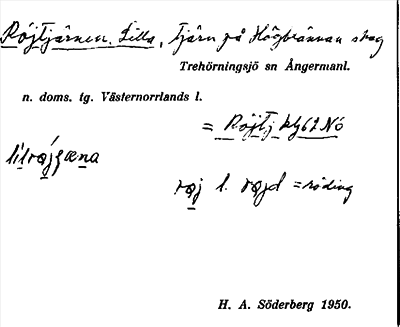 Röjtjärnen, Lilla, tjärn på Högbrännan skog
Trehörningsjö sn Ångermanl.
n. doms. tg. Västernorrlands l.
= Röjtj kbl 62 NÖ
lilrøjçæna
røj l. røjd = röding
H. A. Söderberg 1950.